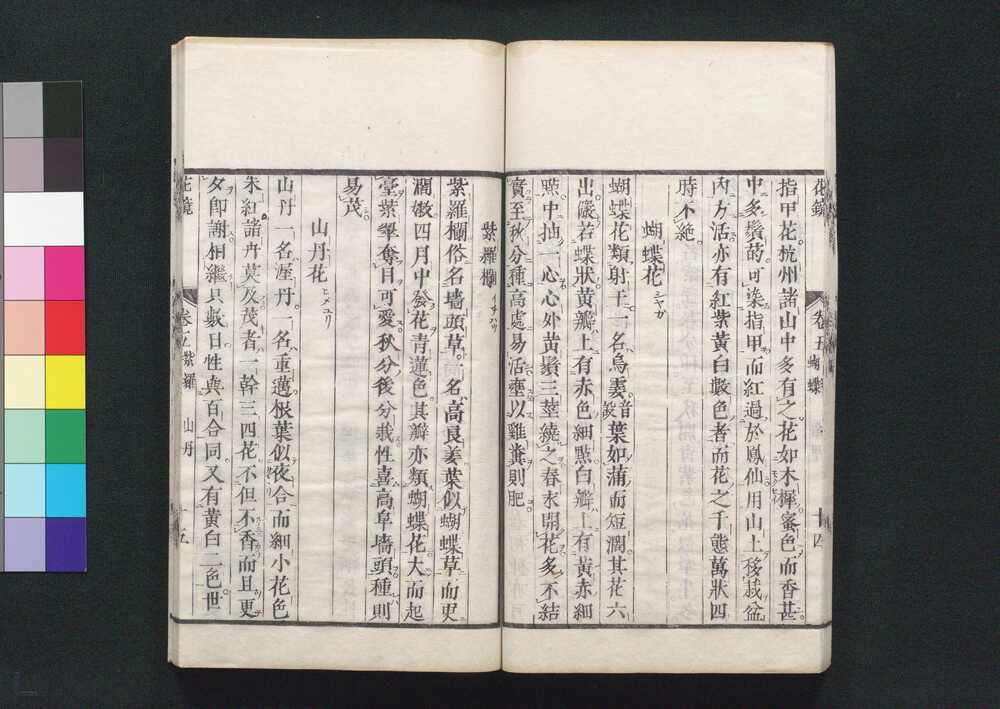 花鏡 卷五 蝴蝶 十四
指甲花杭州諸山中多有之花如木樨蜜色而香甚
中多鬚菂可染指甲而紅過於鳳仙用山土移栽盆
內方活亦有紅紫黃白數色者而花之千態萬狀四
時不絶
蝴蝶花 シヤガ
蝴蝶花類射干一名烏霎音葉如蒲而短濶其花六
出儼若蝶狀黃瓣上有赤色細點白瓣上有黃赤細
點中抽一心心外黃鬚三莖繞之春末開花多不結
實至秋分種高處易活壅以雞糞則肥
紫羅欄 イチハツ
紫羅欄俗名墻頭草一名高良姜葉似蝴蝶草而更
濶嫩四月中發花青蓮色其瓣亦類蝴蝶花大而起
臺紫翠奪目可愛秋分後分栽性喜高阜墻頭種則
易茂
山丹花 ヒメユリ
山丹一名渥丹一名重邁根葉似夜合而細小花色
朱紅諸丹莫及茂者一幹三四花不但不香而且更
夕卽謝相繼只數日性與百合同又有黃白二色世
花鏡 卷五 紫羅 山丹 十五